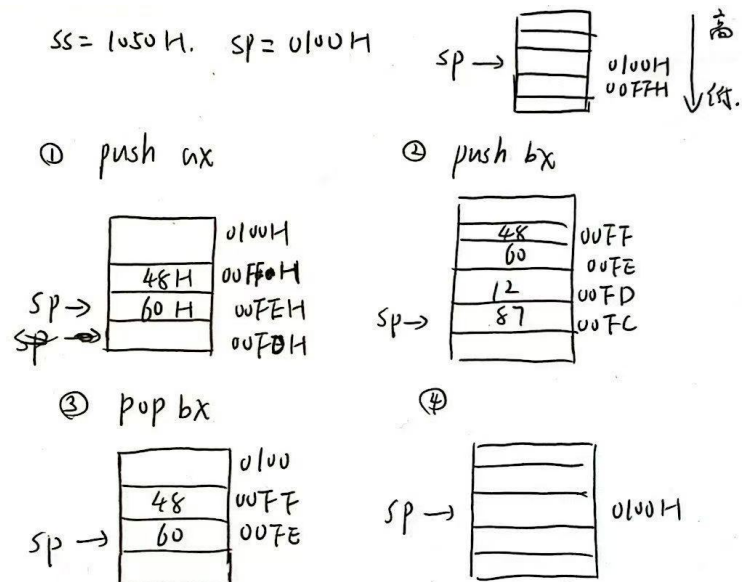 SS = 1050 H. SP = 0100 H
高
SP →
0100H
00FFH
低.
① push ax
0100H
48H
60H
SP →
00FEH
② push bx
48 00FF
60 00FE
12 00FD
SP → 87 00FC
③ pop bx
0100
48 00FF
SP → 60 00FE
④
SP → 0100H